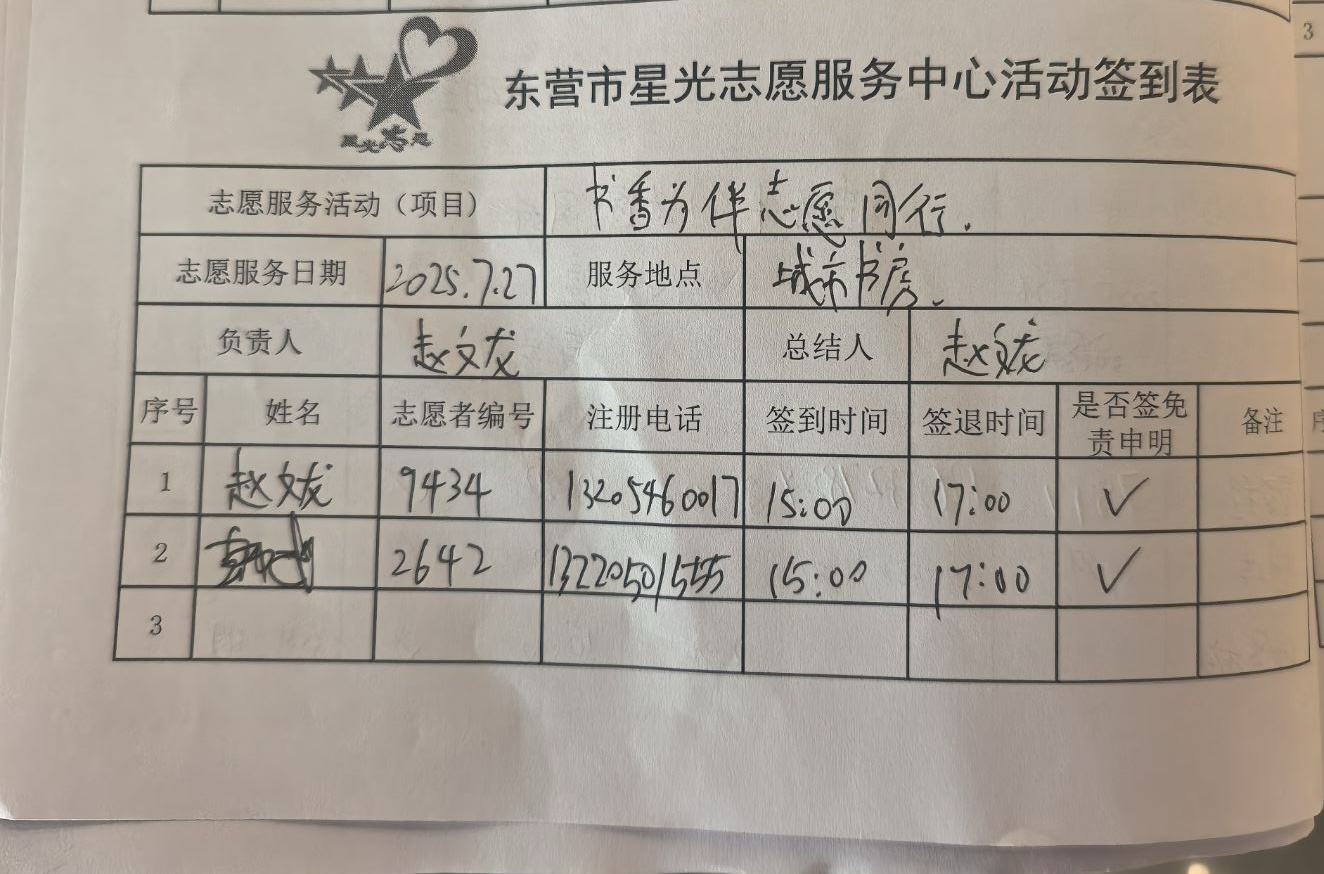 星光志愿
东营市星光志愿服务中心活动签到表
志愿服务活动（项目） 书香为伴志愿同行.
志愿服务日期 2025.7.27 服务地点 城市书房.
负责人 赵文龙 总结人 赵文龙
序号 姓名 志愿者编号 注册电话 签到时间 签退时间 是否签免责申明 备注
1 赵文龙 9434 13205460017 15:00 17:00 ✓
2 2642 13220501555 15:00 17:00 ✓
3